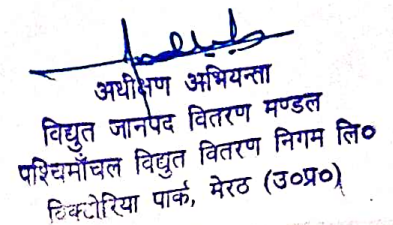 अधीक्षण अभियन्ता
विद्युत जानपद वितरण मण्डल
पश्चिमाँचल विद्युत वितरण निगम लि०
विक्टोरिया पार्क, मेरठ (उ०प्र०)